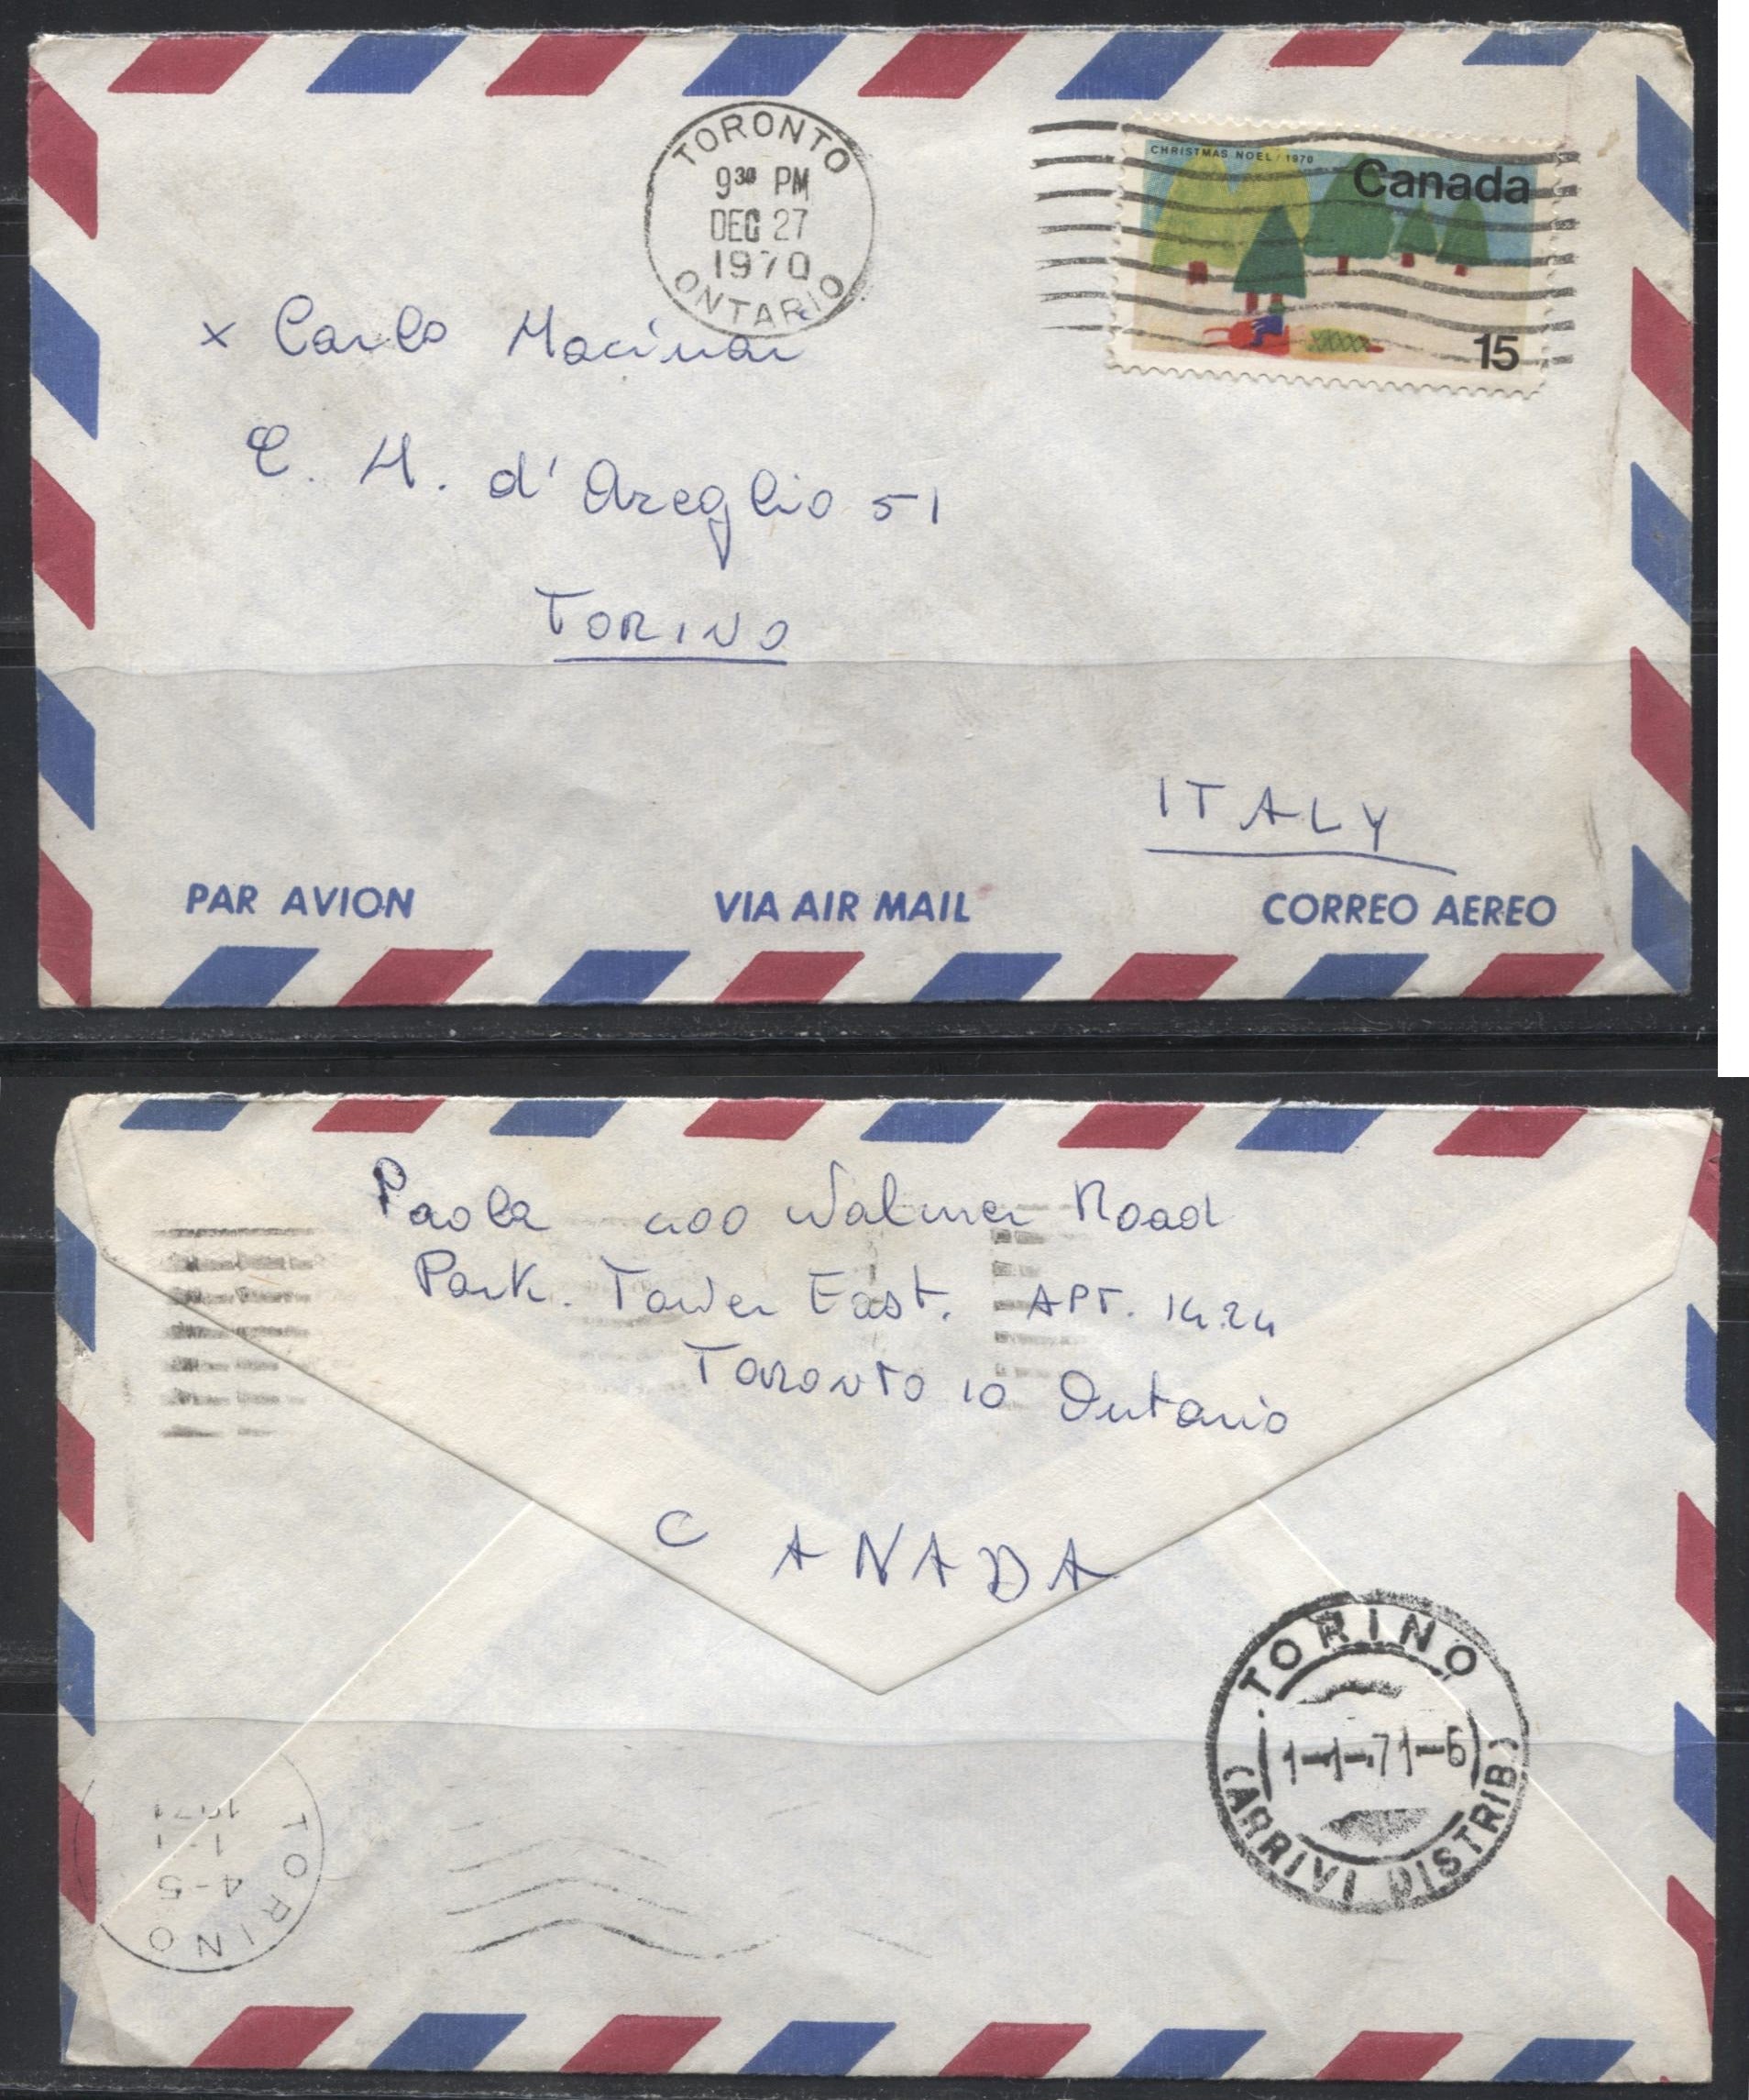 TORONTO
9³⁰ PM
DEC 27
1970
ONTARIO
CHRISTMAS NOEL / 1970
Canada
15
x Carlo
C. M. d'Azeglio 51
TORINO
ITALY
PAR AVION
VIA AIR MAIL
CORREO AEREO
Paola 400 Walmer Road
Park. Tower East. APT. 1424
Toronto 10 Ontario
CANADA
TORINO
1-1-71-6
(ARRIVI DISTRIB)
TORINO
4-5
1-1
1971